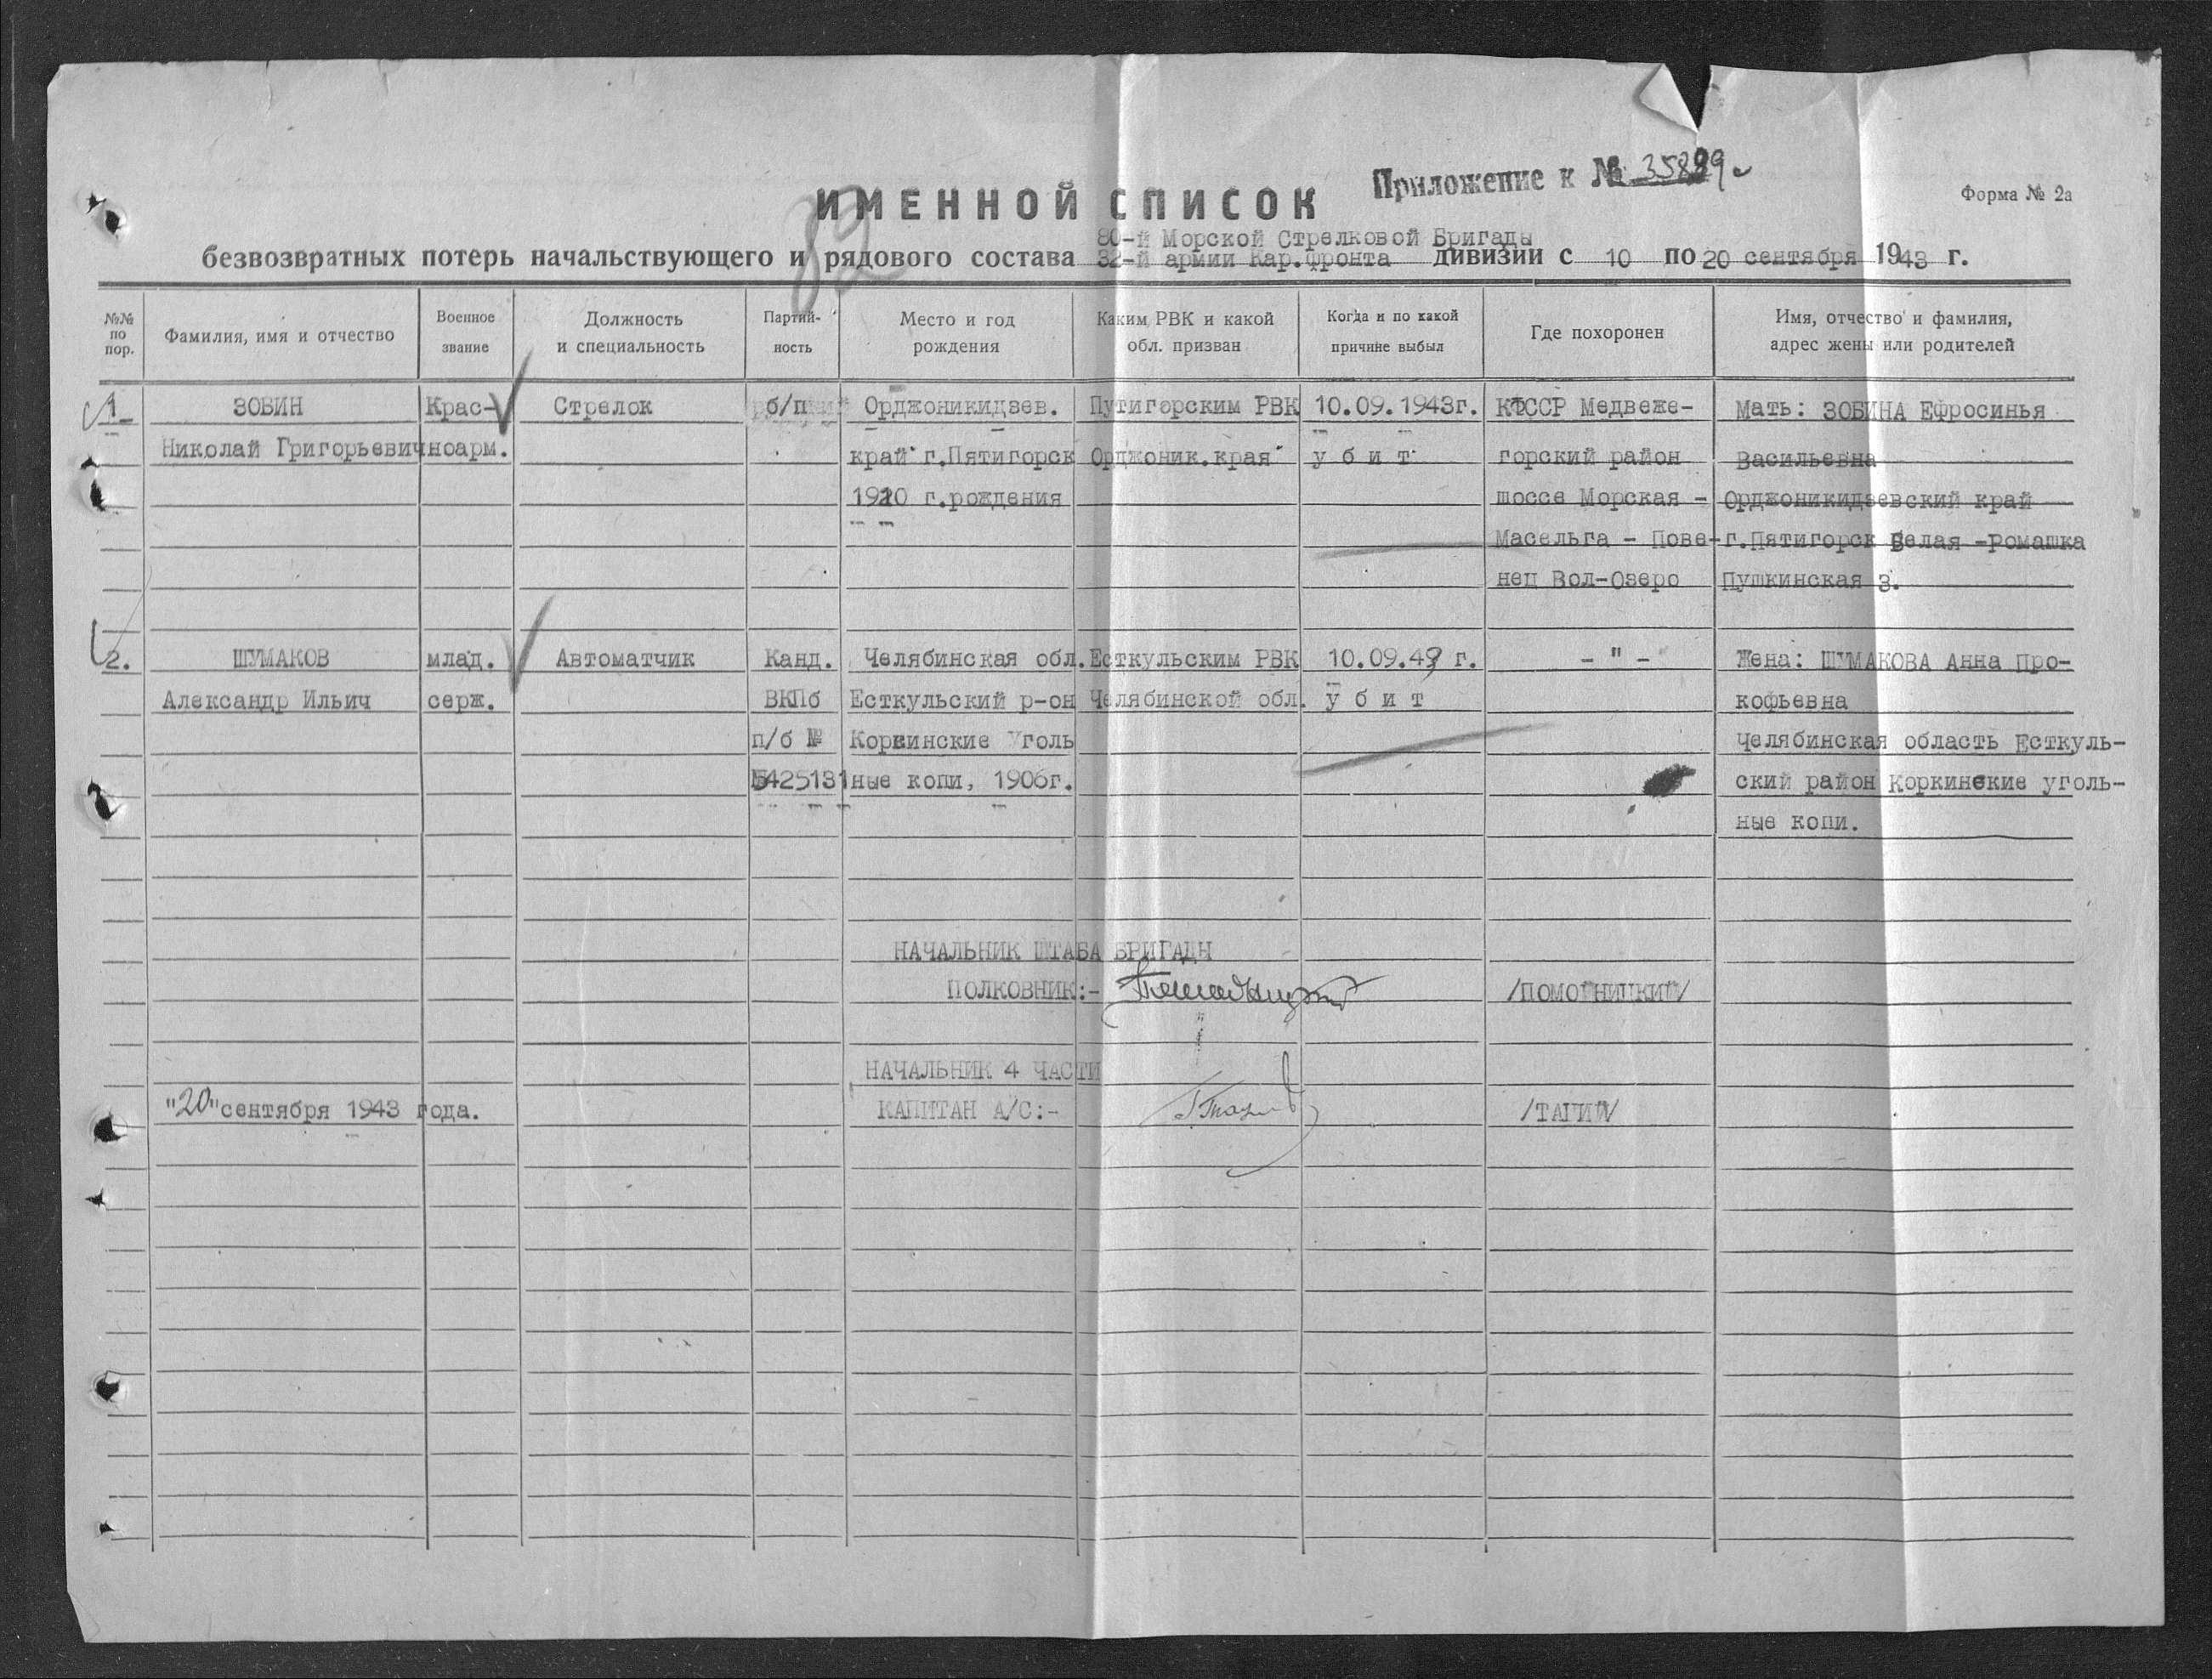 Приложение к №
ИМЕННОЙ СПИСОК
Форма № 2а
82
80-й Морской Стрелковой Бригады
безвозвратных потерь начальствующего и рядового состава 32-й армии Кар.фронта дивизии с 10 по 20 сентября 1943 г.
№№ по пор.
Фамилия, имя и отчество
Военное звание
Должность и специальность
Партийность
Место и год рождения
Каким РВК и какой обл. призван
Когда и по какой причине выбыл
Где похоронен
Имя, отчество и фамилия, адрес жены или родителей
1 ЗОБИН Крас- Стрелок б/п Орджоникидзев. Путигорским РВК 10.09.1943г. КФССР Медвеже- Мать: ЗОБИНА Ефросинья
Николай Григорьевич ноарм. край г.Пятигорск Орджоник.края у б и т горский район Васильевна
1910 г.рождения шоссе Морская - Орджоникидзевский край
Масельга - Пове- г.Пятигорск Белая -ромашка
нец Вол-Озеро Пушкинская 3.
2. ШУМАКОВ млад. Автоматчик Канд. Челябинская обл. Есткульским РВК 10.09.43 г. - " - Жена: ШУМАКОВА Анна Про-
Александр Ильич серж. ВКПб Есткульский р-он Челябинской обл. у б и т кофьевна
п/б № Коркинские Уголь Челябинская область Есткуль-
5425131 ные копи, 1906г. ский район Коркинские уголь-
ные копи.
НАЧАЛЬНИК ШТАБА БРИГАДЫ
ПОЛКОВНИК:- /ПОМОЙНИЦКИЙ/
НАЧАЛЬНИК 4 ЧАСТИ
"20" сентября 1943 года. КАПИТАН А/С:- /ТАГИЙ/